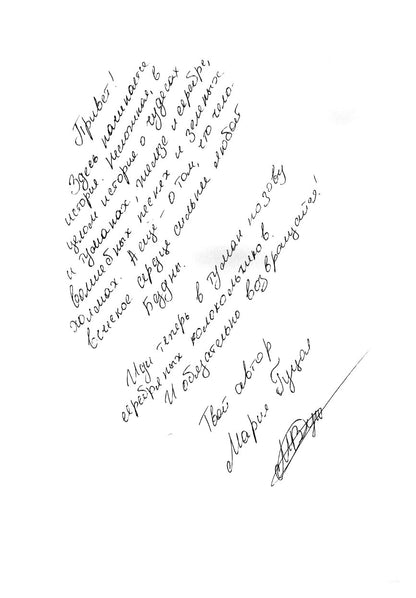 Привет!
Здесь начинается
история. Неспешная, в
целом история о чудесах
и туманах, пчелах и серебре,
волшебных песнях и зеленых
холмах. А ещё - о том, что чело-
веческое сердце сильнее любой
беды.
Иди теперь в туман по зову
серебряных колокольчиков.
И обязательно возвращайся!
Твой автор
Мария Гуцол